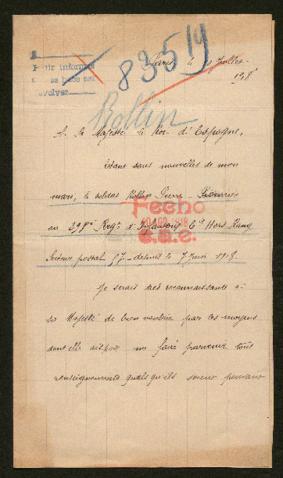 83519
le Juillet
1918
Rollin
A sa Majesté le Roi d'Espagne,
étant sans nouvelles de mon
mari, le soldat Rollin Pierre
Fecho
au 298e Regt d'Infanterie Cie Hors Rang
C.a.e.
Secteur postal 97 - depuis le 7 juin 1918.
Je serais très reconnaissante à
sa Majesté de bien vouloir par les moyens
dont elle dispose me faire parvenir tous
renseignements quels qu'ils soient